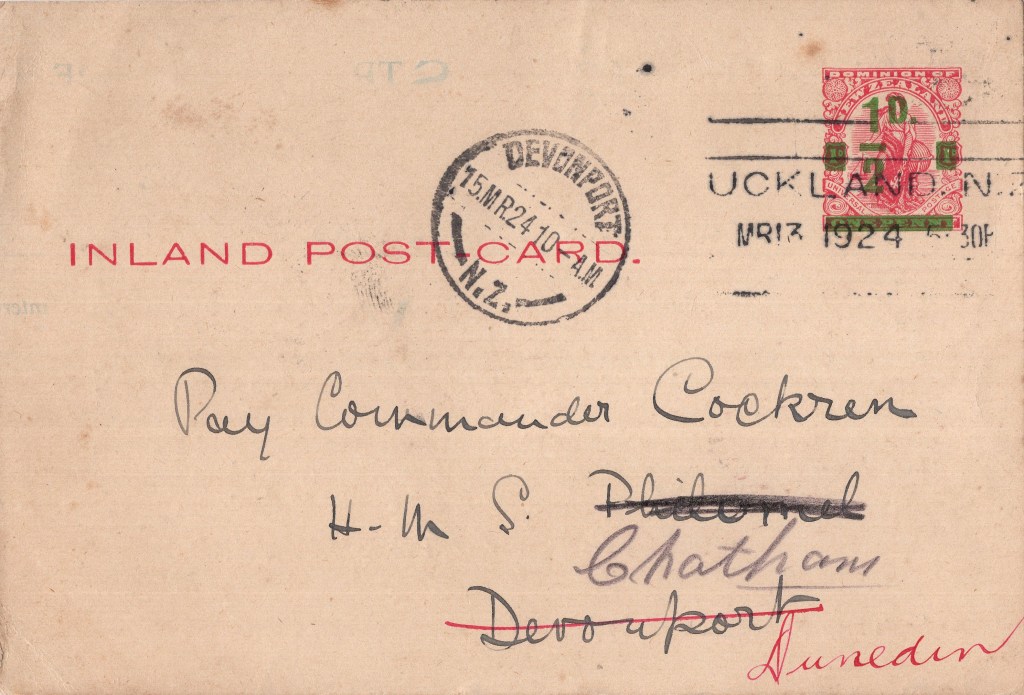 DOMINION OF
NEW ZEALAND
1D.
2
DEVONPORT
15.MR.24.10- A.M.
N.Z.
UCKLAND. N.Z
MR13 1924 30P
INLAND POST-CARD.
Pay Commander Cockrem
H-M S. Philomel
Chatham
Devonport
Dunedin